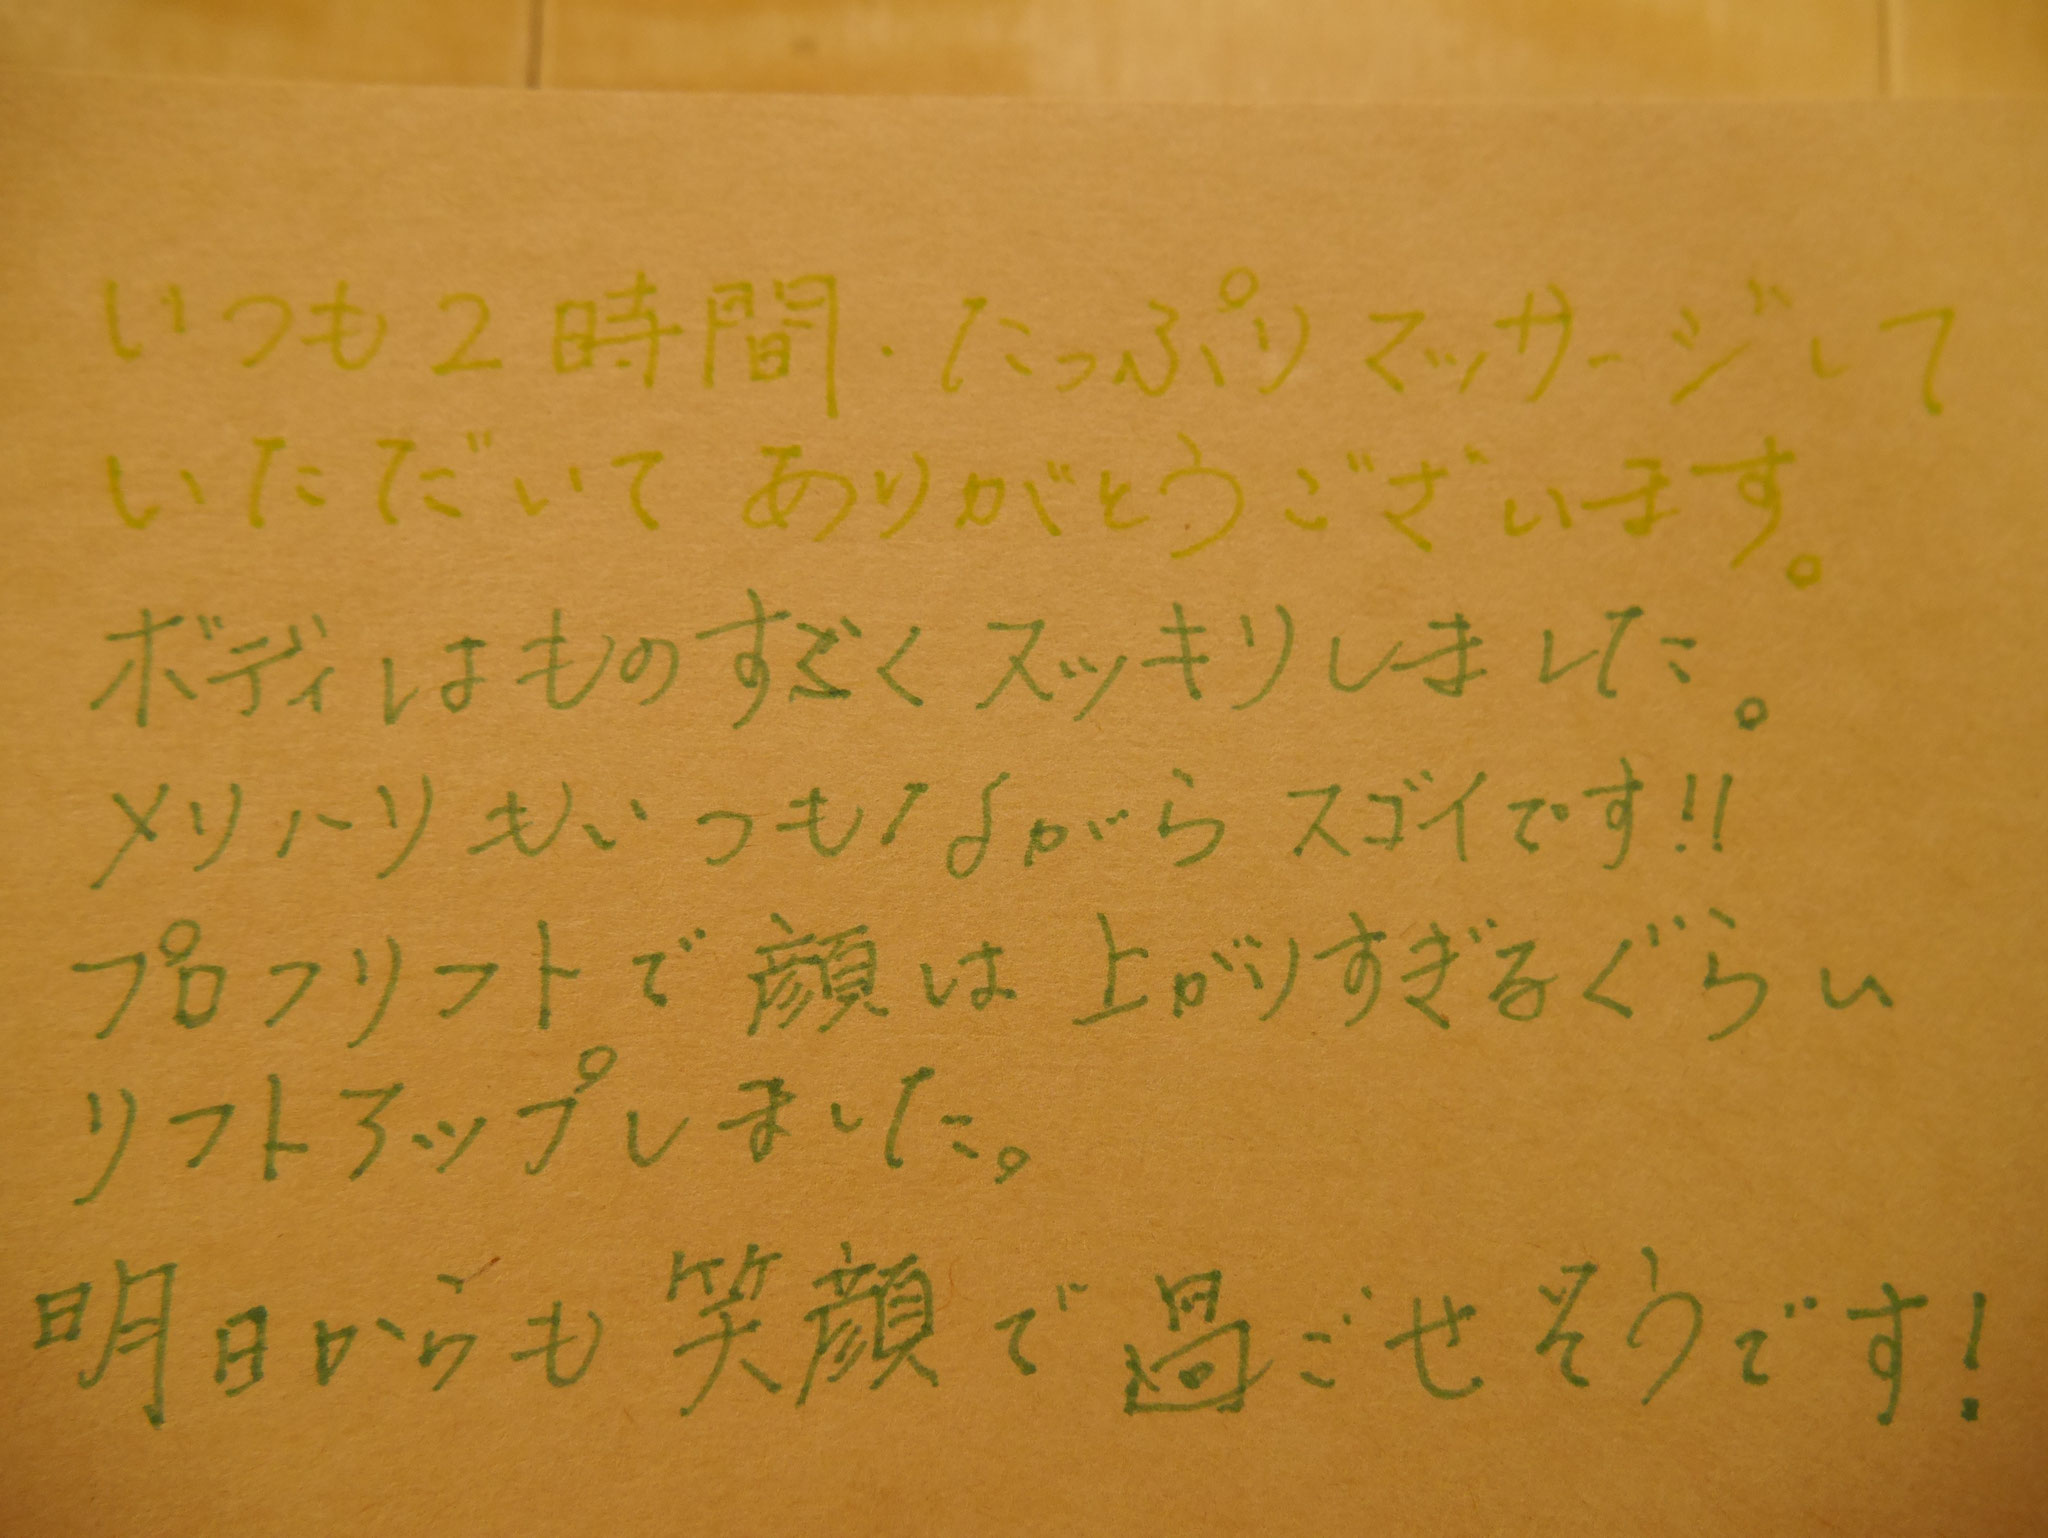 いつも2時間・たっぷりマッサージして
いただいてありがとうございます。
ボディはものすごくスッキリしました。
メリハリもいつもながらスゴイです!!
プロフリフトで顔は上がりすぎるぐらい
リフトアップしました。
明日からも笑顔で過ごせそうです!